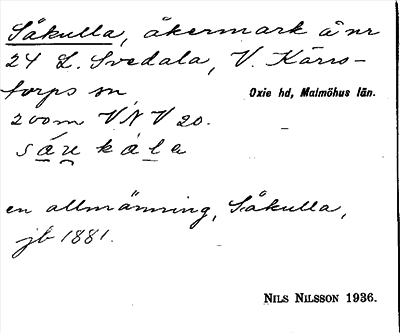 Såkulla, åkermark å nr
24 L. Svedala, V. Kärrs-
torps sn Oxie hd, Malmöhus län.
200 m V.N.V 20.
en allmänning, Såkulla,
jb 1881.
NILS NILSSON 1936.